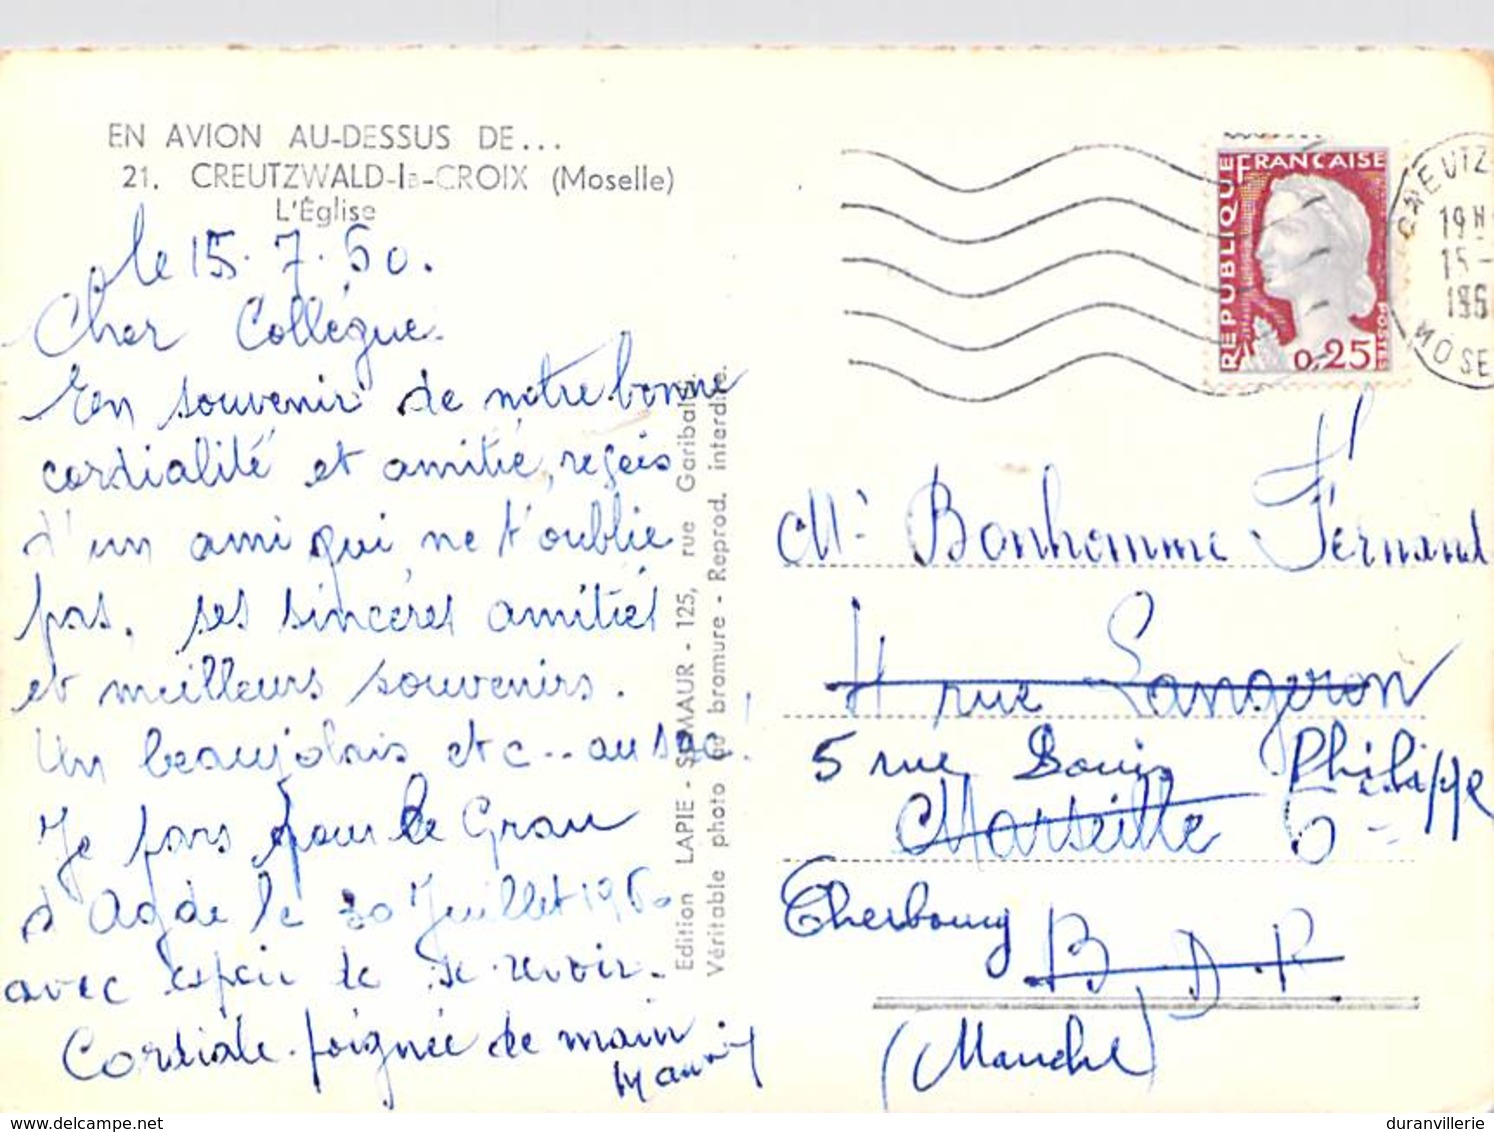 EN AVION AU-DESSUS DE...
21. CREUTZWALD-la-CROIX (Moselle)
L'Église
le 15.7.60.
Cher Collègue.
En souvenir de notre bonne
cordialité et amitié, reçois
d'un ami qui ne t'oublie
pas, ses sincères amitiés
et meilleurs souvenirs.
Un beaujolais etc... au sac!
Je pars pour le Grau
d'Agde le 30 Juillet 1960
avec espoir de se revoir.
Cordiale poignée de main
Edition LAPIE - St-MAUR - 125, rue Garibaldi.
Véritable photo au bromure - Reprod. interdite.
RÉPUBLIQUE FRANÇAISE
POSTES
0,25
CREUTZ
19 H
15 -
196
MOSE
Mr Bonhomme Fernand
11 rue Langeron
5 rue Louis Philippe
Marseille 6
Cherbourg
B D R
(Manche)
duranvillerie
www.delcampe.net